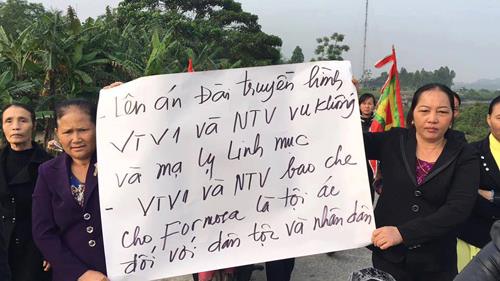 - Lên án Đài truyền hình
VTV1 và NTV vu khống
và mạ lỵ Linh mục
- VTV1 và NTV bao che
cho, Formosa là tội ác
đối với dân tộc và nhân dân